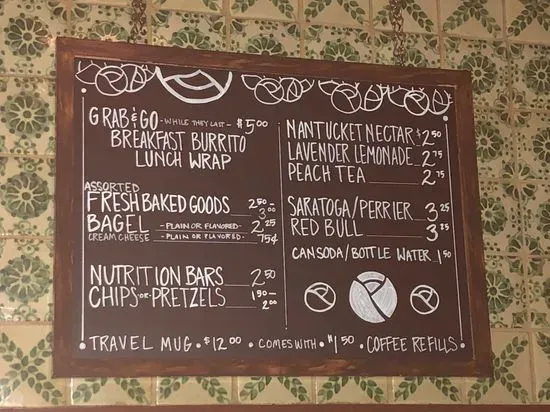 GRAB & GO - WHILE THEY LAST - $5.00
BREAKFAST BURRITO
LUNCH WRAP
ASSORTED
FRESH BAKED GOODS 2.50 - 3.00
BAGEL - PLAIN OR FLAVORED - 2.25
CREAM CHEESE - PLAIN OR FLAVORED - 75¢
NUTRITION BARS 2.50
CHIPS OR PRETZELS 1.50 - 2.00
NANTUCKET NECTAR $2.50
LAVENDER LEMONADE 2.75
PEACH TEA 2.75
SARATOGA/PERRIER 3.25
RED BULL 3.75
CAN SODA/BOTTLE WATER 1.50
TRAVEL MUG • $12.00 • COMES WITH • $1.50 • COFFEE REFILLS •